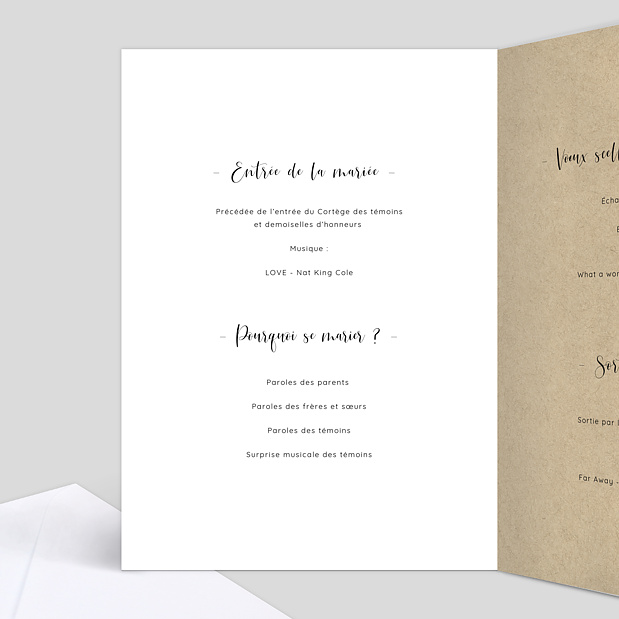 – Entrée de la mariée –
Précédée de l'entrée du Cortège des témoins
et demoiselles d'honneurs
Musique :
LOVE - Nat King Cole
– Pourquoi se marier ? –
Paroles des parents
Paroles des frères et sœurs
Paroles des témoins
Surprise musicale des témoins
– Vœux
What a
Sortie par
Far Away -